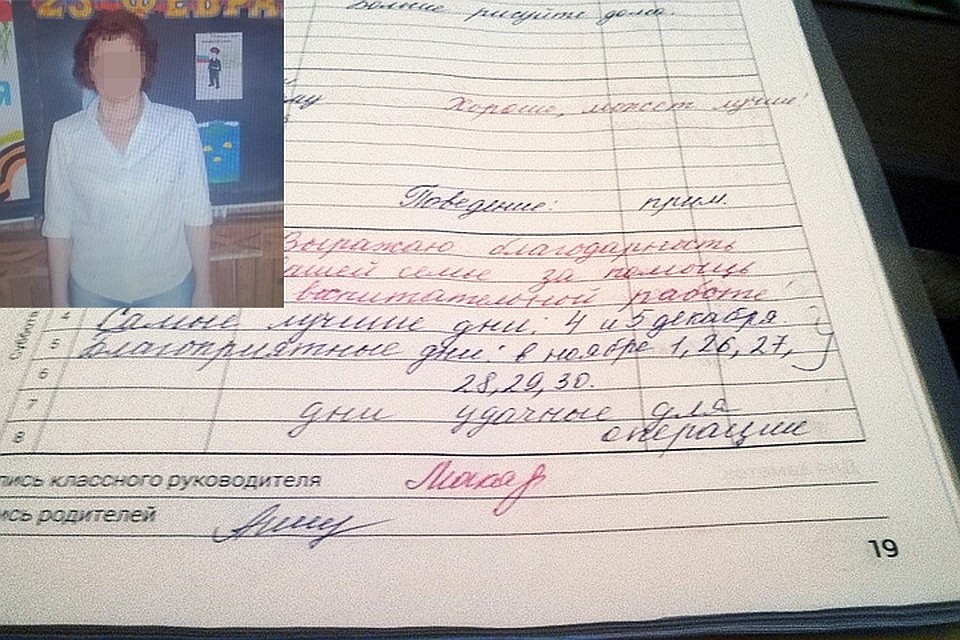 23 ФЕВРА
Больше рисуйте дома.
му
Хорошо, может лучше!
Поведение: прим.
Выражаю благодарность
вашей семье за помощь
воспитательной работе!
Суббота
4
Самые лучшие дни: 4 и 5 декабря
5
Благоприятные дни: в ноябре 1, 26, 27,
6
28, 29, 30.
7
дни удачные для
8
операции
пись классного руководителя
ись родителей
19